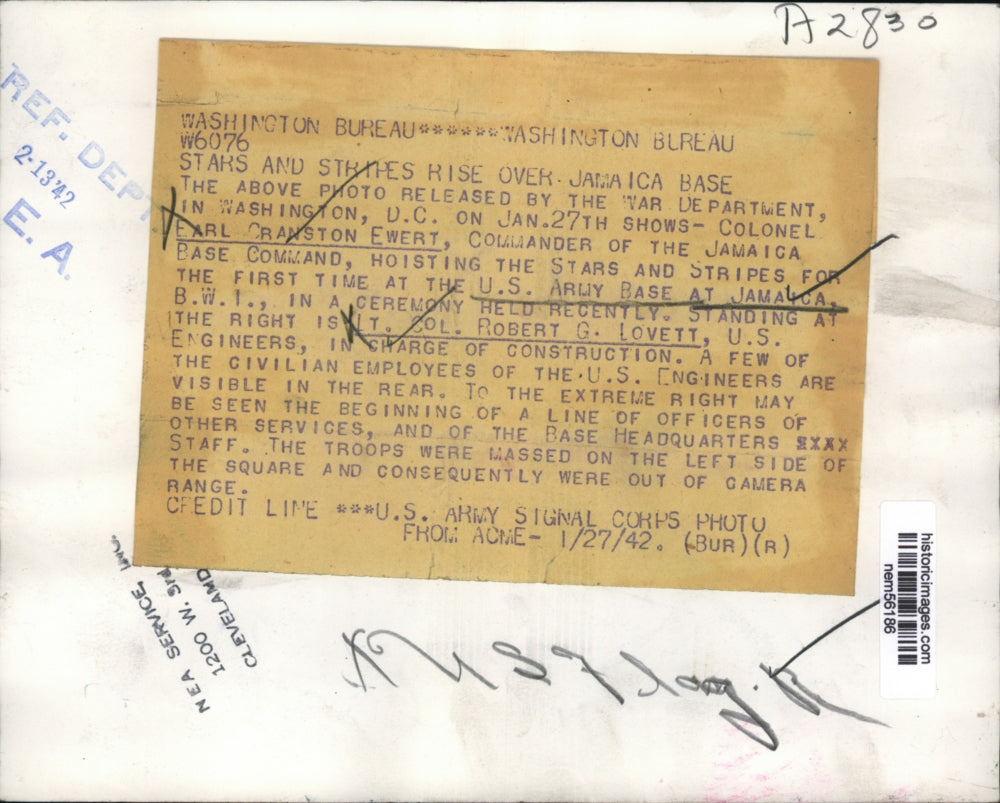 A2830
REF. DEPT
2-13'42
E. A.
WASHINGTON BUREAU******WASHINGTON BUREAU
W6076
STARS AND STRIPES RISE OVER JAMAICA BASE
THE ABOVE PHOTO RELEASED BY THE WAR DEPARTMENT,
IN WASHINGTON, D.C. ON JAN.27TH SHOWS- COLONEL
EARL CRANSTON EWERT, COMMANDER OF THE JAMAICA
BASE COMMAND, HOISTING THE STARS AND STRIPES FOR
THE FIRST TIME AT THE U.S. ARMY BASE AT JAMAICA,
B.W.I., IN A CEREMONY HELD RECENTLY. STANDING AT
THE RIGHT IS LT. COL. ROBERT G. LOVETT, U.S.
ENGINEERS, IN CHARGE OF CONSTRUCTION. A FEW OF
THE CIVILIAN EMPLOYEES OF THE U.S. ENGINEERS ARE
VISIBLE IN THE REAR. TO THE EXTREME RIGHT MAY
BE SEEN THE BEGINNING OF A LINE OF OFFICERS OF
OTHER SERVICES, AND OF THE BASE HEADQUARTERS XXXX
STAFF. THE TROOPS WERE MASSED ON THE LEFT SIDE OF
THE SQUARE AND CONSEQUENTLY WERE OUT OF CAMERA
RANGE.
CREDIT LINE ***U.S. ARMY SIGNAL CORPS PHOTO
FROM ACME- 1/27/42. (BUR)(R)
NEA SERVICE, Inc.
1200 W. 3rd
CLEVELAND
historicimages.com
nem56186
U S Flag.